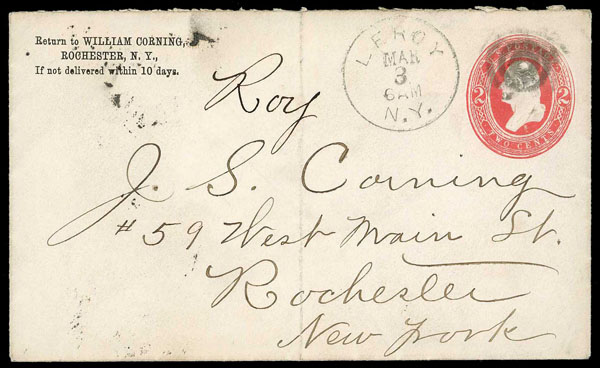 Return to WILLIAM CORNING,
ROCHESTER, N. Y.,
If not delivered within 10 days.
LEROY
MAR
3
6AM
N.Y.
2
2
TWO CENTS
Roy
J. S. Corning
# 59 West Main St.
Rochester
New York